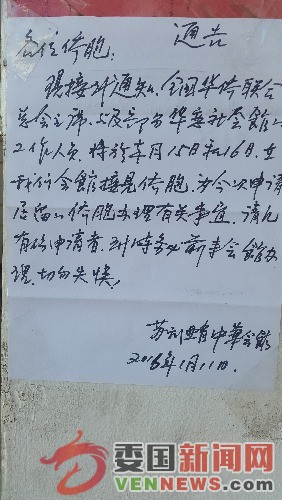 通告
各位侨胞：
现接到通知，全国华侨联合
总会主席，及部分华社会館
工作人员，将於本月15日和16日，在
我们会館接見侨胞，为今次申请
居留的侨胞办理有关事宜，请凡
有份申请者，到时务必前来会館办
理，切勿失误！
苏利亚省中華会館
2016年1月11日.
委国新闻网
VENNEWS.COM